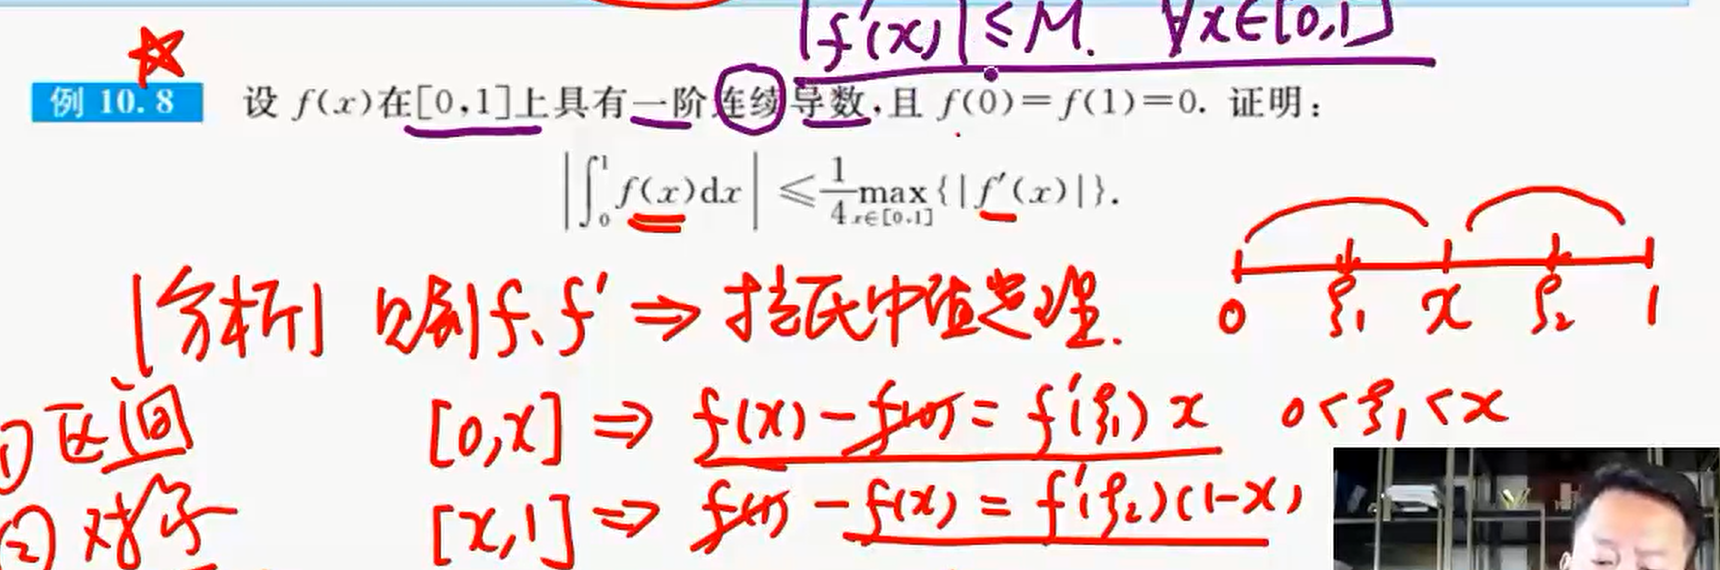 |f'(x)| ≤ M. ∀x∈[0,1]
例 10.8 设 f(x)在[0,1]上具有一阶连续导数,且 f(0)=f(1)=0. 证明:
|∫₀¹ f(x)dx| ≤ 1/4 max_{x∈[0,1]}{|f'(x)|}.
[分析] 出现 f、f' ⇒ 拉氏中值定理.
0 ξ₁ x ξ₂ 1
① 区间 [0,x] ⇒ f(x)-f(0)=f'(ξ₁)x 0<ξ₁<x
② [x,1] ⇒ f(1)-f(x)=f'(ξ₂)(1-x)